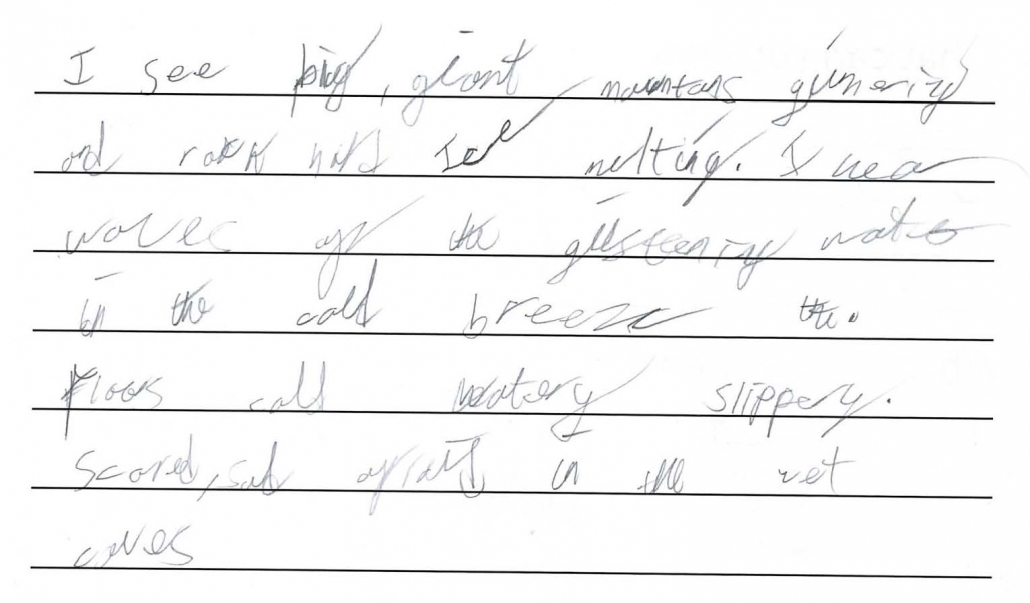 I see big, giant mountans
and Ice melting. I hear
waves of the glisteening water
in the cold breeze the.
Floor cold watery slippery.
Scared, sad afraid in the wet
caves